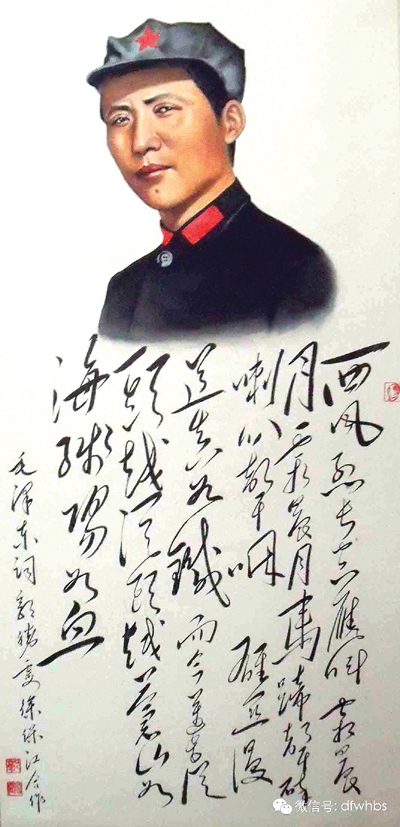 西风烈长空雁叫霜晨
月霜晨月马蹄声碎
喇叭声咽 雄关漫
道真如鐵而今迈步从
头越从头越苍山如
海残陽如血
毛泽东词 江合作
微信号: dfwhbs